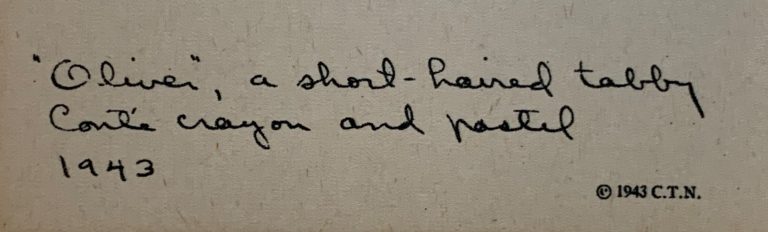 "Oliver", a short-haired tabby
Conté crayon and pastel
1943
© 1943 C.T.N.